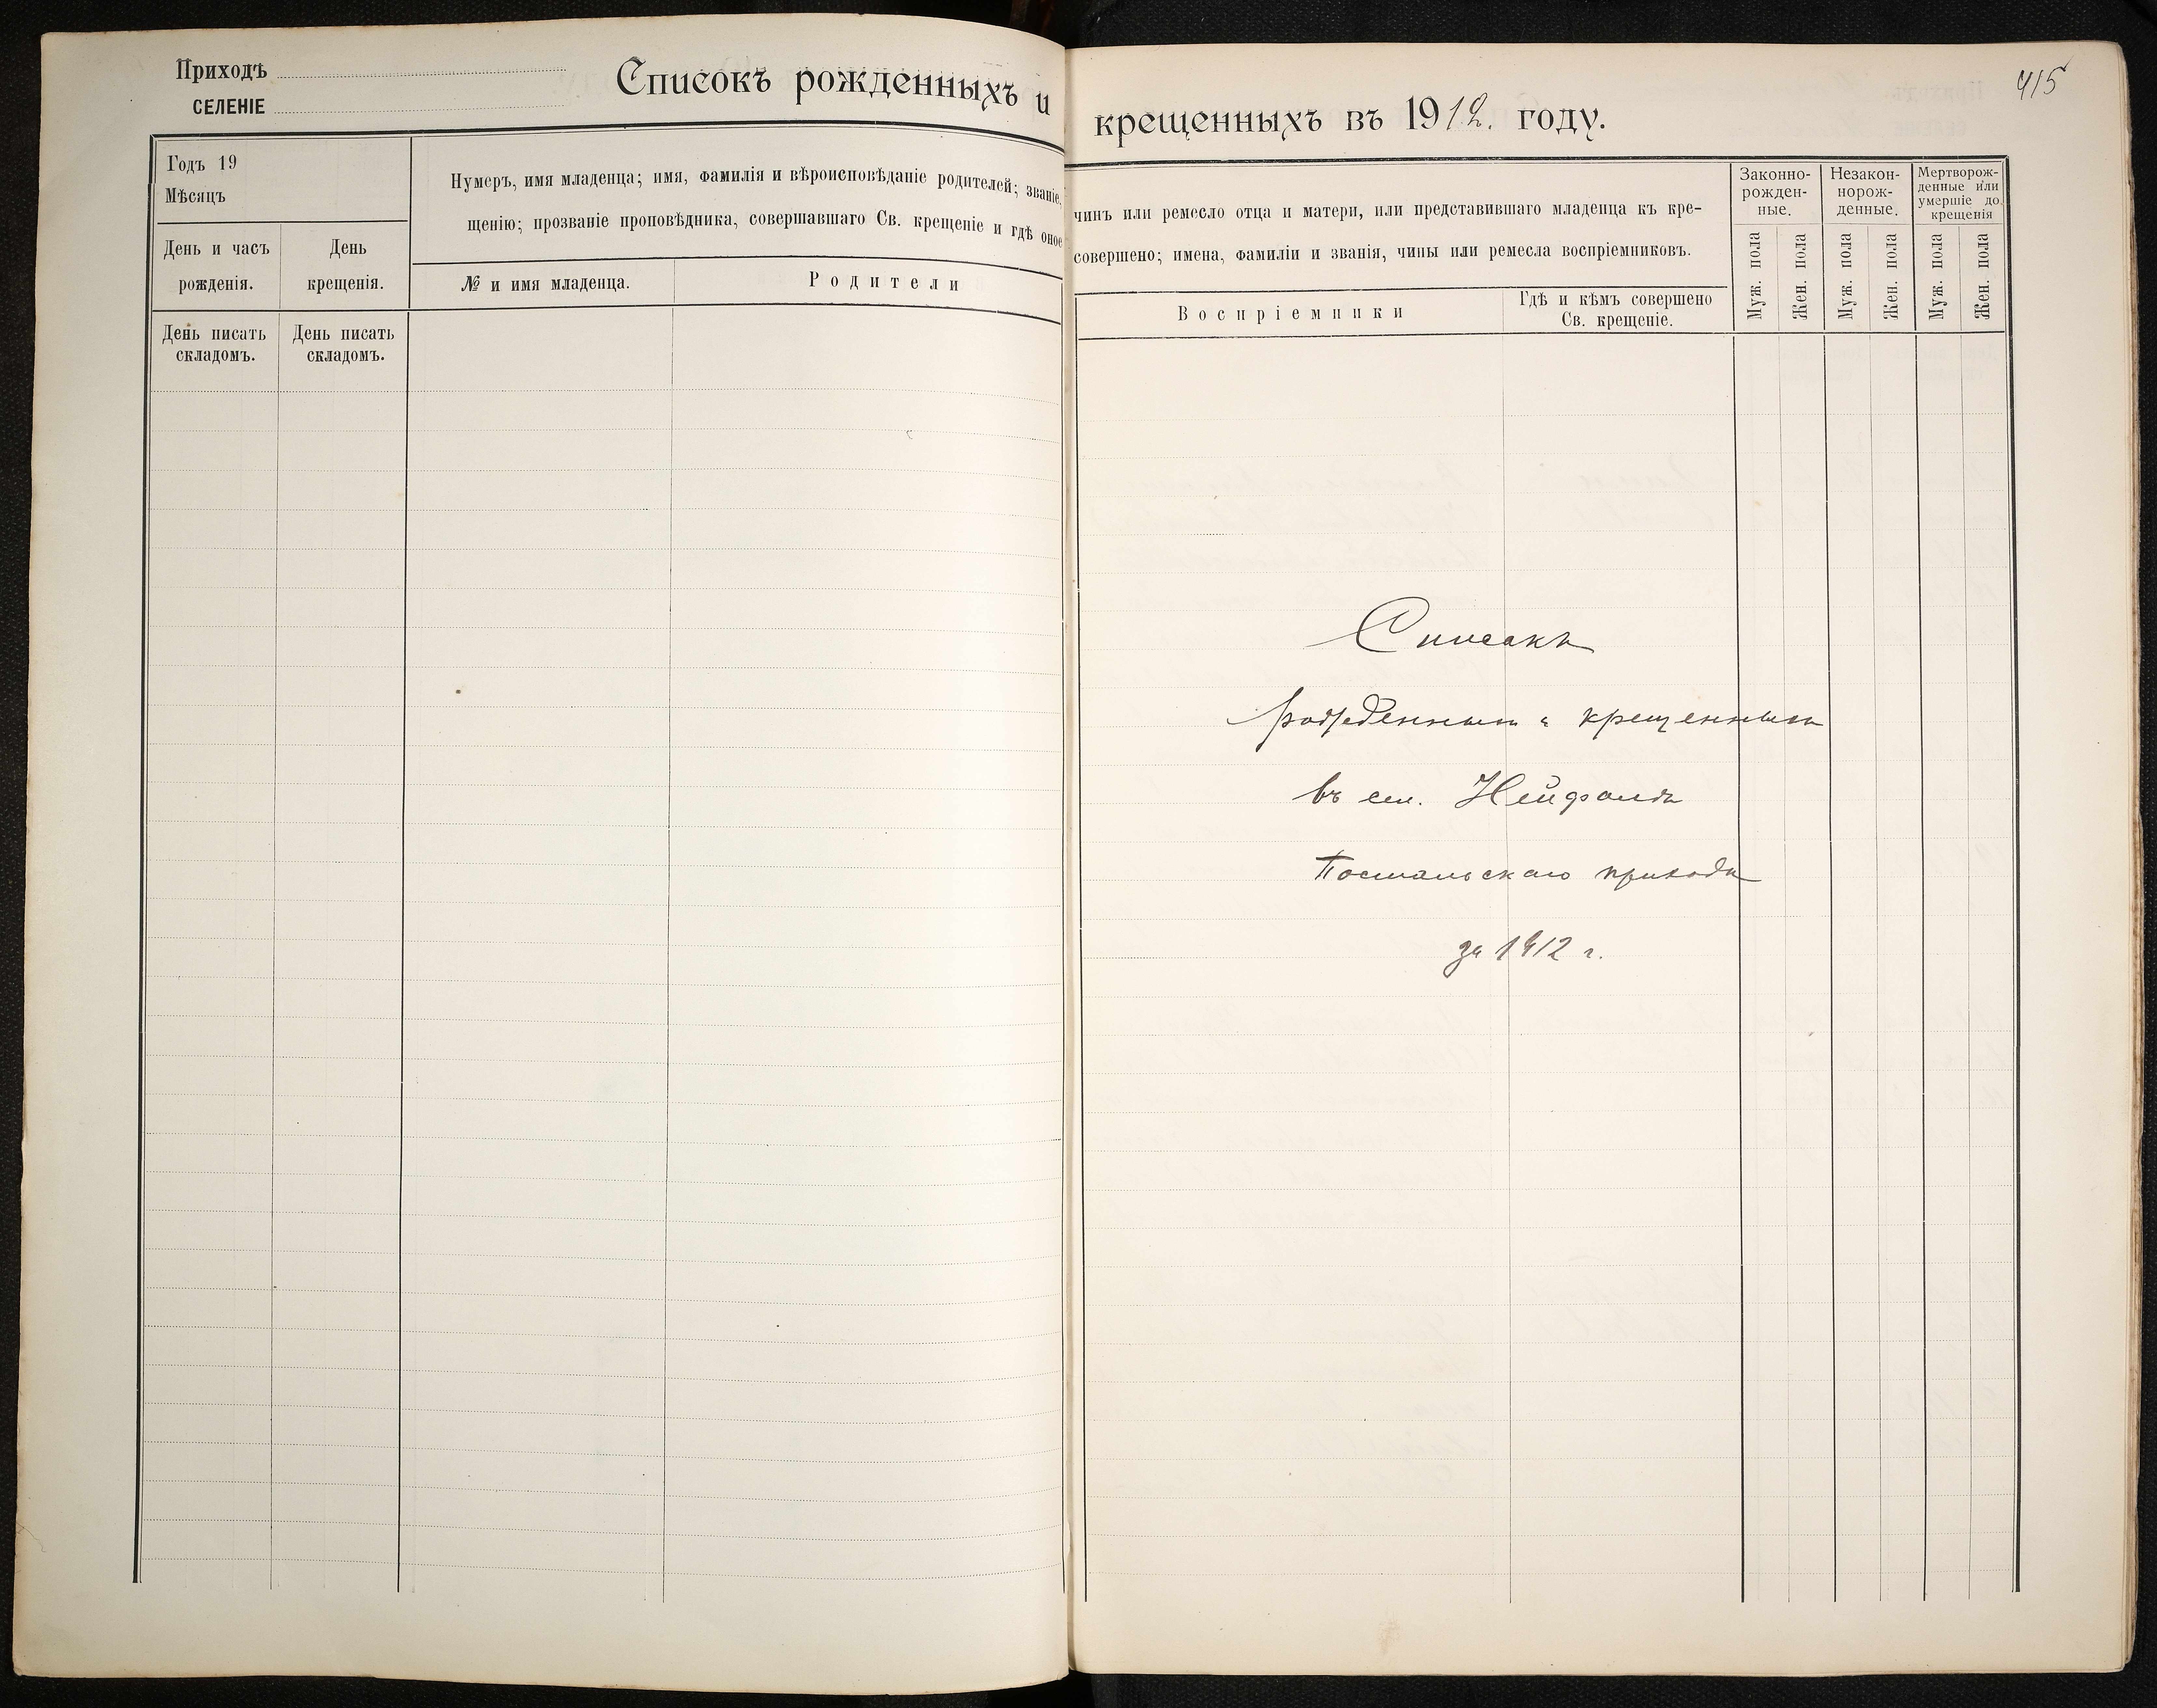 Приходъ
СЕЛЕНІЕ
Списокъ рожденныхъ и
Годъ 19
Мѣсяцъ
День и часъ
рожденія.
День
крещенія.
Нумеръ, имя младенца; имя, фамилія и вѣроисповѣданіе родителей; званіе,
щенію; прозваніе проповѣдника, совершавшаго Св. крещеніе и гдѣ оное
№ и имя младенца.
Родители
День писать
складомъ.
День писать
складомъ.
415
крещенныхъ въ 1912. году.
чинъ или ремесло отца и матери, или представившаго младенца къ кре-
совершено; имена, фамиліи и званія, чины или ремесла воспріемниковъ.
Воспріемники
Гдѣ и кѣмъ совершено
Св. крещеніе.
Законно-
рожден-
ные.
Незакон-
норож-
денные.
Мертворож-
денные или
умершіе до
крещенія
Муж. пола
Жен. пола
Муж. пола
Жен. пола
Муж. пола
Жен. пола
Списокъ
рожденнымъ и крещеннымъ
въ сел.
Постальскаго прихода
за 1912 г.